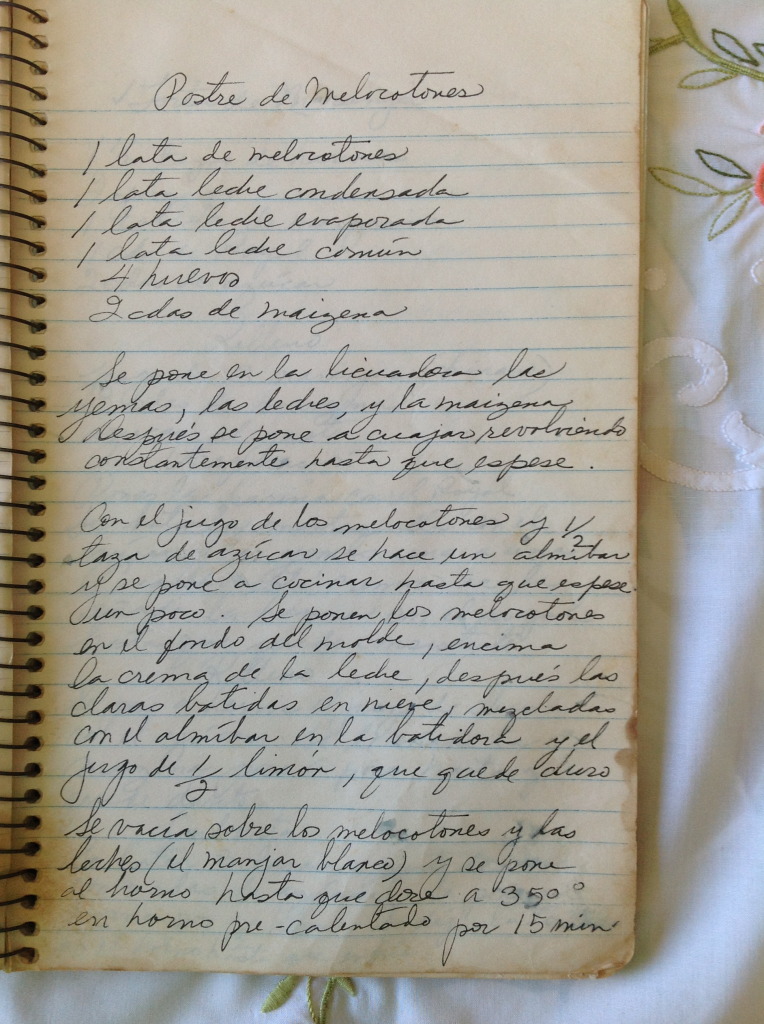 Postre de Melocotones
1 lata de melocotones
1 lata leche condensada
1 lata leche evaporada
1 lata leche común
4 huevos
2 cdas de maizena
Se pone en la licuadora las
yemas, las leches, y la maizena
después se pone a cuajar revolviendo
constantemente hasta que espese.
Con el jugo de los melocotones y 1/2
taza de azúcar se hace un almíbar
y se pone a cocinar hasta que espese
un poco. Se ponen los melocotones
en el fondo del molde, encima
la crema de la leche, después las
claras batidas en nieve, mezcladas
con el almíbar en la batidora y el
jugo de 1/2 limón, que quede duro
Se vacía sobre los melocotones y las
leches (el manjar blanco) y se pone
al horno hasta que dore a 350°
en horno pre-calentado por 15 min.